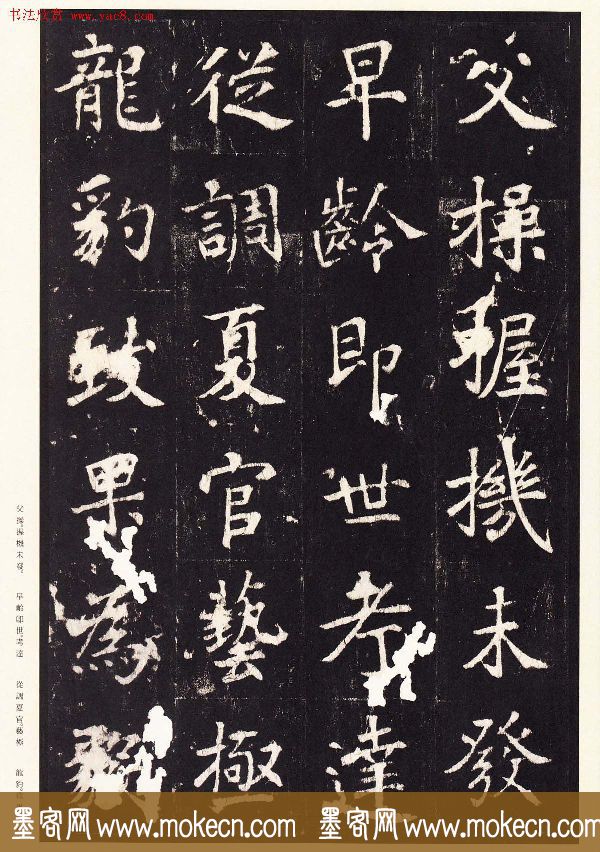 书法欣赏 www.yac8.com
父操握機未發
早齡即世考達
從調夏官藝極
龍豹致果為毅
父操握機未發。 早齡即世。考達 從調夏官。藝極 龍豹
墨客网 www.mokecn.com 墨客网 www.mokecn.com